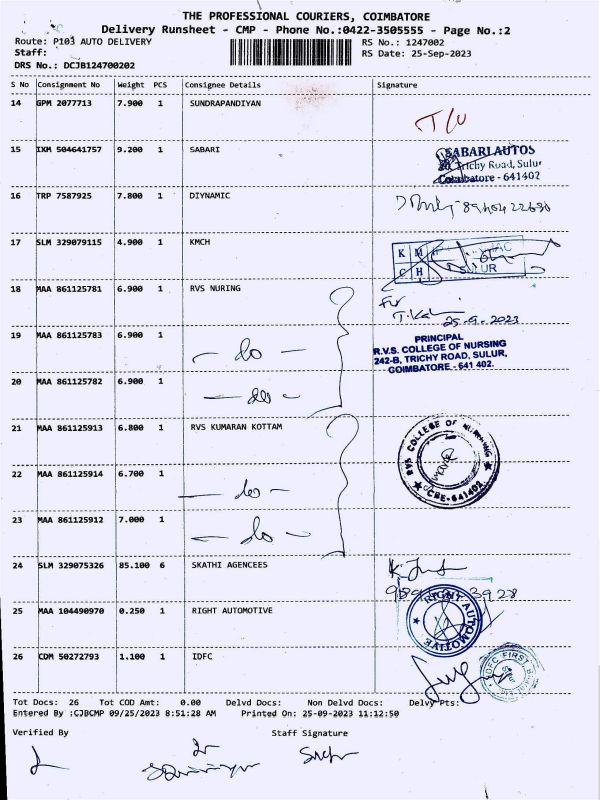 THE PROFESSIONAL COURIERS, COIMBATORE
Delivery Runsheet - CMP - Phone No.:0422-3505555 - Page No.:2
Route: P103 AUTO DELIVERY RS No.: 1247002
Staff: RS Date: 25-Sep-2023
DRS No.: DCJB124700202
S No Consignment No Weight PCS Consignee Details Signature
14 GPM 2077713 7.900 1 SUNDRAPANDIYAN
15 IXM 504641757 9.200 1 SABARI
SABARI AUTOS
Trichy Road, Sulur
Coimbatore - 641402
16 TRP 7587925 7.800 1 DIYNAMIC
17 SLM 329079115 4.900 1 KMCH
K M
C H SULUR
18 MAA 861125781 6.900 1 RVS NURING
For
25-9-2023
19 MAA 861125783 6.900 1
- do -
PRINCIPAL
R.V.S. COLLEGE OF NURSING
242-B, TRICHY ROAD, SULUR,
COIMBATORE - 641 402.
20 MAA 861125782 6.900 1
- do -
21 MAA 861125913 6.800 1 RVS KUMARAN KOTTAM
RVS COLLEGE OF NURSING
CBE-641402
22 MAA 861125914 6.700 1
- do -
23 MAA 861125912 7.000 1
- do -
24 SLM 329075326 85.100 6 SKATHI AGENCEES
25 MAA 104490970 0.250 1 RIGHT AUTOMOTIVE
RIGHT AUTOMOTIVE
26 CDM 50272793 1.100 1 IDFC
IDFC FIRST
Tot Docs: 26 Tot COD Amt: 0.00 Delvd Docs: Non Delvd Docs: Delvy Pts:
Entered By :CJBCMP 09/25/2023 8:51:28 AM Printed On: 25-09-2023 11:12:50
Verified By Staff Signature